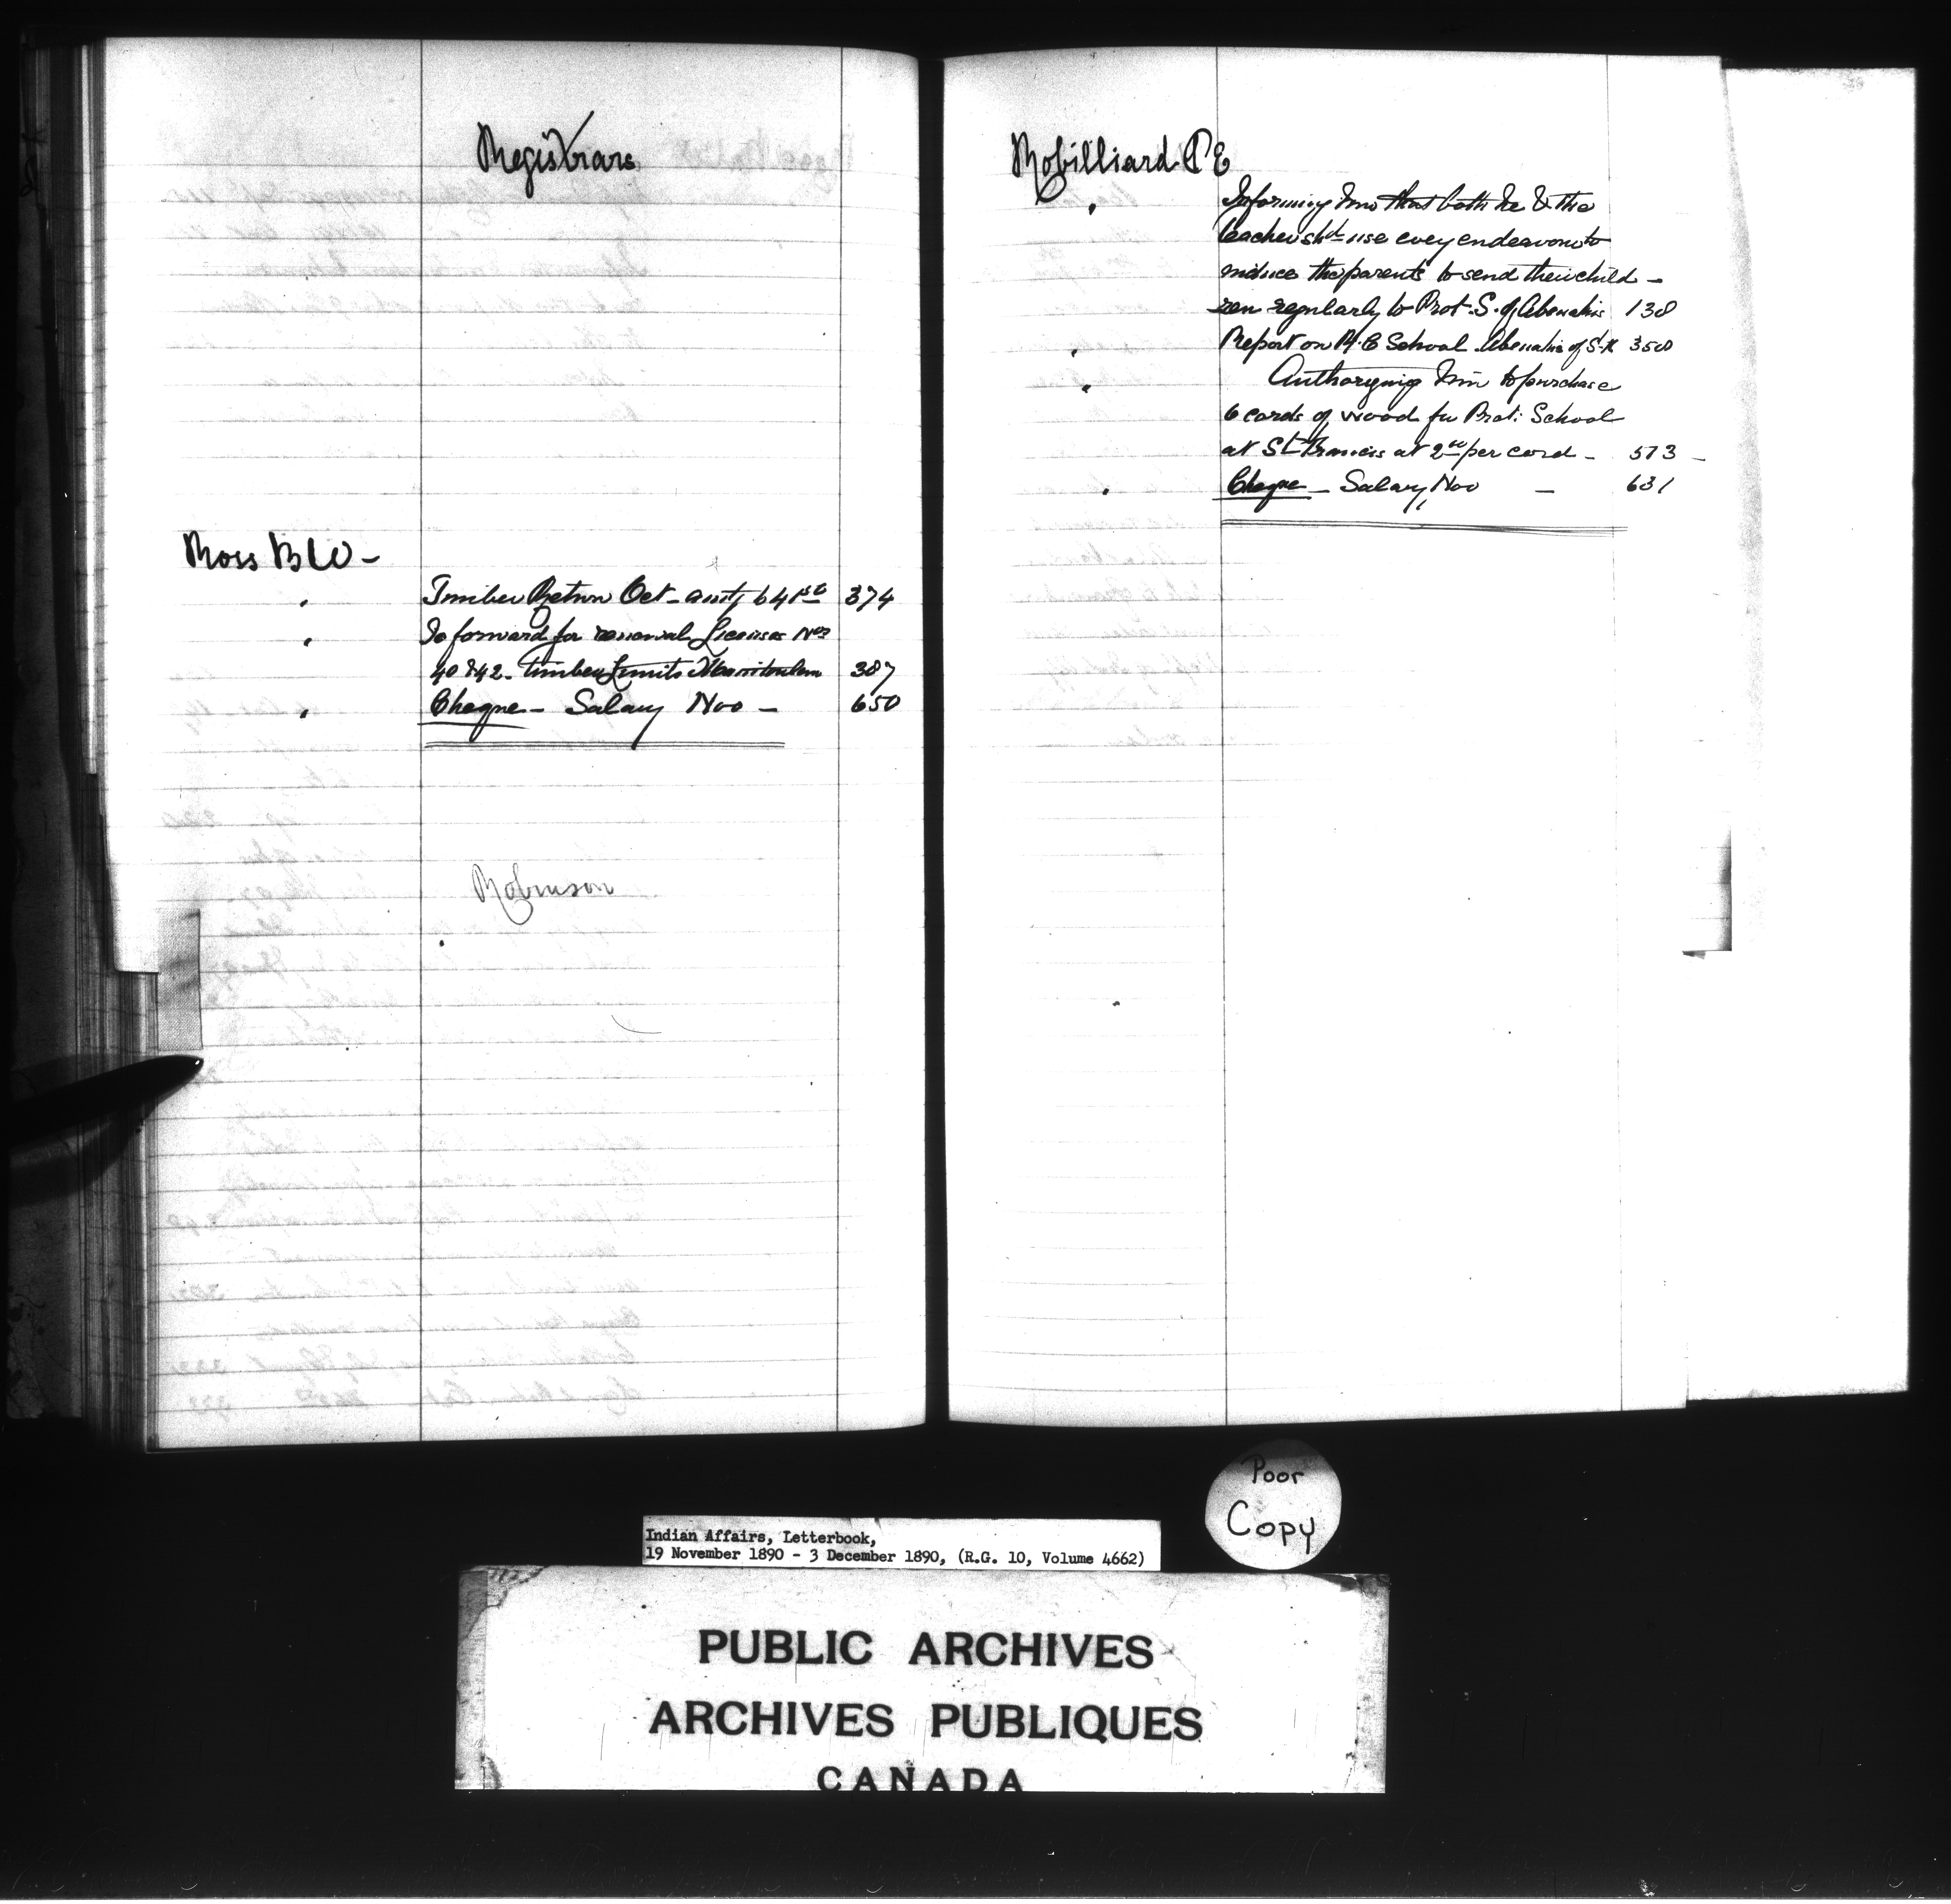 Registrars
Ross B W -
" Timber Return Oct - amtg 641 50 374
" To forward for renewal Licenses Nos
40 & 42 - timber Limits Manitoulin 387
" Cheque - Salary Nov - 650
Robinson
Robilliard P E
" Informing him that both he & the
teacher shd use every endeavour to
induce the parents to send their child -
ren regularly to Prot. S. of Abenakis 138
" Report on R. C School Abenakis of S. 350
" Authorizing him to purchase
6 cords of wood for Prot: School
at St Francis at 2 00 per cord - 573 -
" Cheque - Salary, Nov - 631
Poor
Copy
Indian Affairs, Letterbook,
19 November 1890 - 3 December 1890, (R.G. 10, Volume 4662)
PUBLIC ARCHIVES
ARCHIVES PUBLIQUES
CANADA